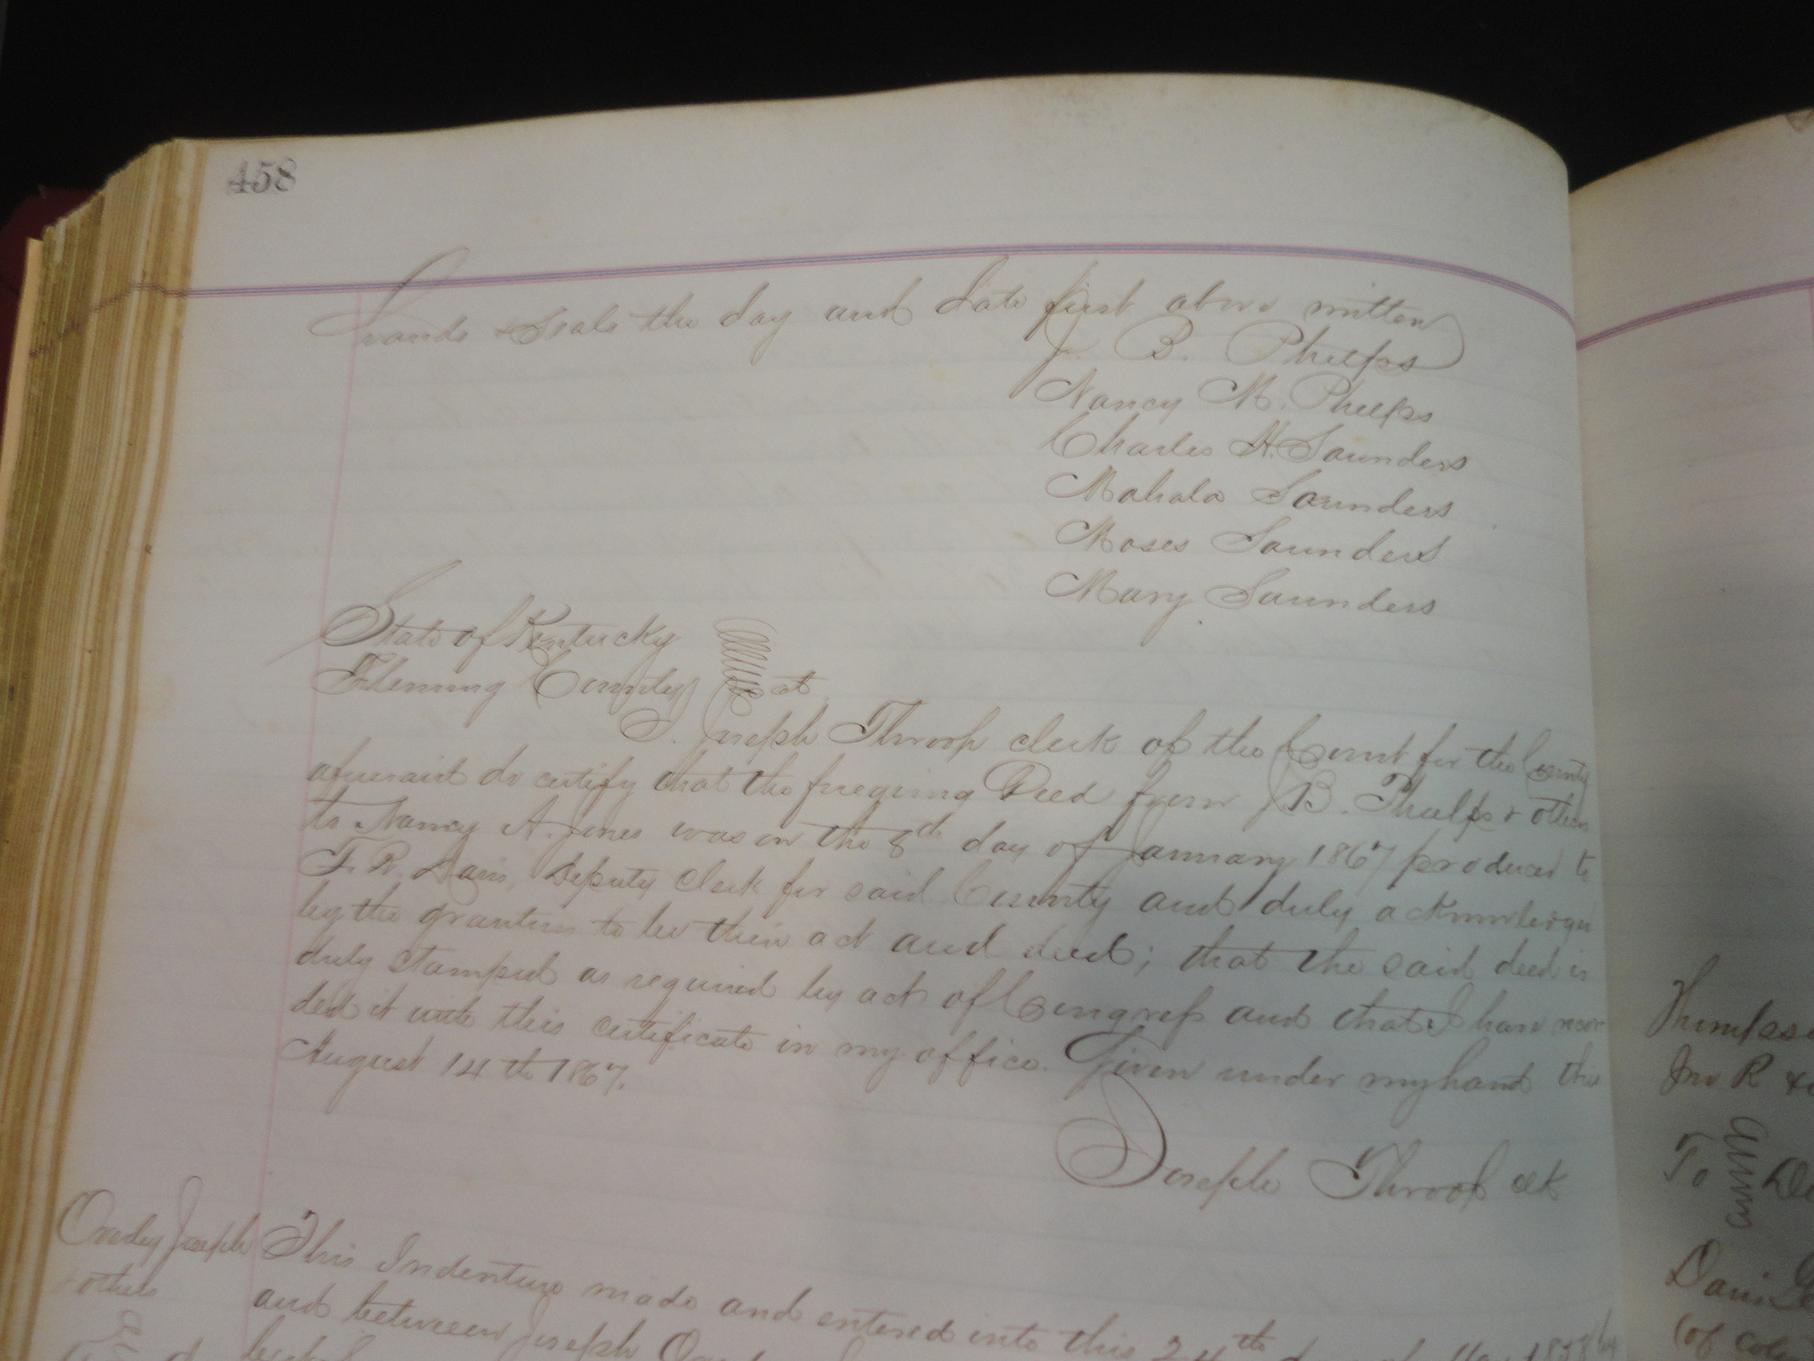 458
hands & Seals the day and date first above written
J. B. Phelps
Nancy M. Phelps
Charles H. Saunders
Mahala Saunders
Moses Saunders
Mary Saunders
State of Kentucky
Fleming County Sct
I. Joseph Throop clerk of the Court for the County
aforesaid do certify that the foregoing Deed from J B. Phelps & others
to Nancy A. Jones was on the 8th day of January 1867 produced to
F. R. Davis, Deputy clerk for said County and duly acknowledged
by the grantors to be their act and deed; that the said deed is
duly stamped as required by act of Congress and that I have recor
ded it with this certificate in my office. Given under my hand this
August 14th 1867.
Joseph Throop clk
Overley Joseph
& others
This Indenture made and entered into this 24th day of May 1858 by
and between Joseph
Jno R &
To
Davis
(of